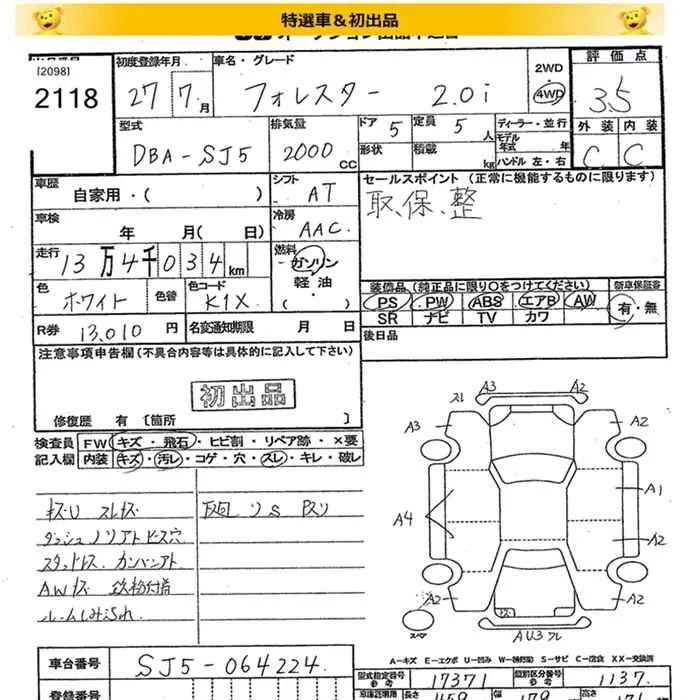 特選車＆初出品
[2098]
2118
初度登録年月
27年 7月
車名・グレード
フォレスター 2.0i
2WD
・
4WD
評価点
3.5
型式
DBA-SJ5
排気量
2000cc
ドア 5
定員 5人
形状
積載 kg
ディーラー・並行
モデル年式 年
ハンドル 左・右
外装 内装
C C
車歴
自家用・( )
シフト
AT
セールスポイント(正常に機能するものに限ります)
取、保、整
車検
年 月( 日)
冷房
AAC
走行
13万4千034km
燃料
ガソリン
軽油・
( )
色
ホワイト
色替
色コード
K1X
装備品(純正品に限り○をつけてください)
PS PW ABS エアB AW
SR ナビ TV カワ
新車保証書
有・無
R券 13,010円
名変通知期限 月 日
後日品
注意事項申告欄(不具合内容等は具体的に記入して下さい)
初出品
修復歴 有 [箇所 ]
検査員記入欄
FW キズ・飛石・ヒビ割・リペア跡・×要
内装 キズ・汚レ・コゲ・穴・スレ・キレ・破レ
ダッシュノリアトビス穴
ルームしみ
A3 A2
A3 A2
A4 A1
A2
A2 A2
スペア
A-キズ E-エクボ U-凹み W-補修跡 S-サビ C-腐食 XX-交換済
車台番号
SJ5-064224
型式指定番号
17371
類別区分番号
1137
登録番号
長さ 459
179
171